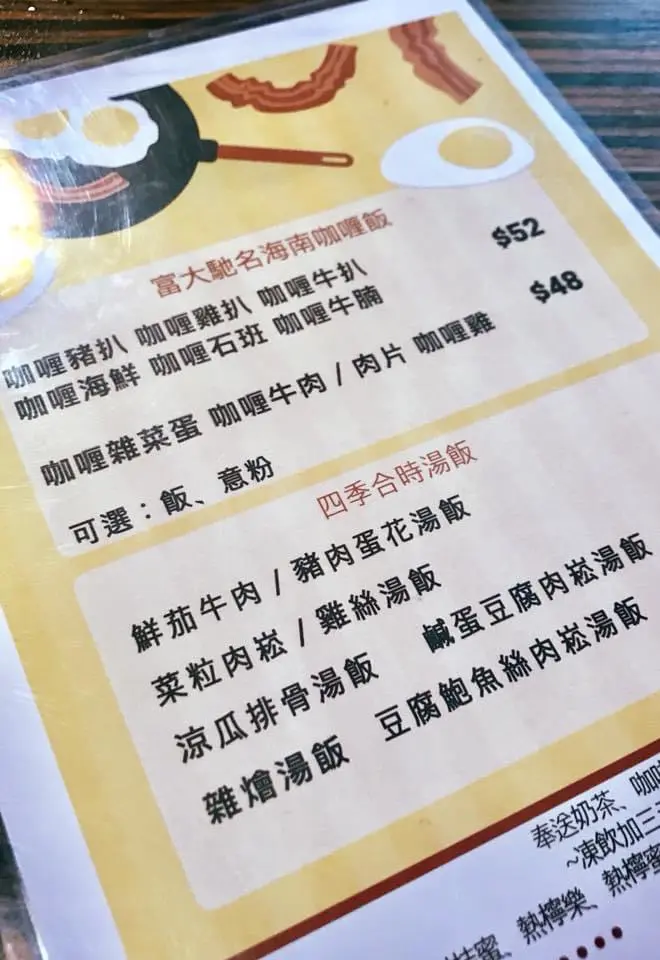 富大馳名海南咖喱飯
咖喱豬扒 咖喱雞扒 咖喱牛扒 $52
咖喱海鮮 咖喱石班 咖喱牛腩
咖喱雜菜蛋 咖喱牛肉 / 肉片 咖喱雞 $48
可選：飯、意粉
四季合時湯飯
鮮茄牛肉 / 豬肉蛋花湯飯
菜粒肉崧 / 雞絲湯飯
涼瓜排骨湯飯 鹹蛋豆腐肉崧湯飯
雜燴湯飯 豆腐鮑魚絲肉崧湯飯
奉送奶茶、咖
~凍飲加三
蜜、熱檸樂、熱檸蜜